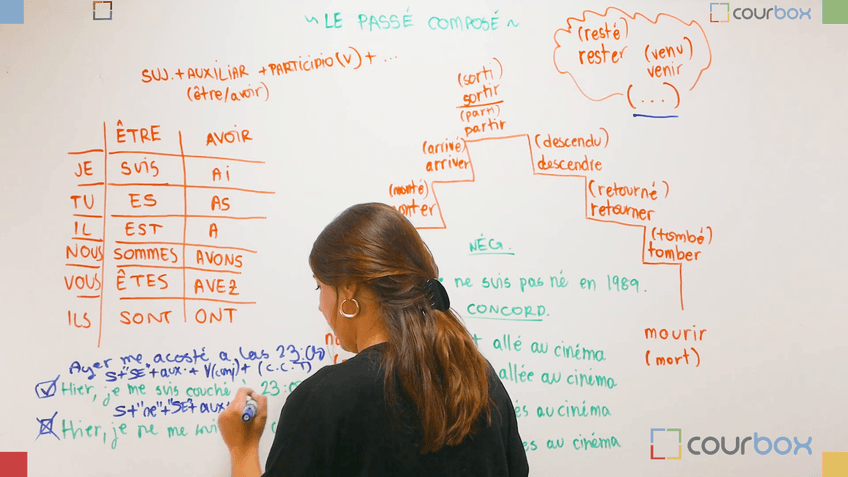 ~ LE PASSÉ COMPOSÉ ~
courbox
SUJ. + AUXILIAR + PARTICIPIO (V) + ...
(être/avoir)
ÊTRE AVOIR
JE SUIS Ai
TU ES AS
IL EST A
NOUS SOMMES AVONS
VOUS ÊTES AVEZ
ILS SONT ONT
(resté)
rester
(venu)
venir
(...)
(sorti)
sortir
(parti)
partir
(arrivé)
arriver
(monté)
(descendu)
descendre
(retourné)
retourner
(tombé)
tomber
mourir
(mort)
NÉG.
ne suis pas né en 1989.
CONCORD.
allé au cinéma
allée au cinéma
au cinéma
au cinéma
Ayer me acosté a las
S+"SE"+aux.+ V(comj)+ (C.C.T)
Hier, je me suis couché
S+"ne"+"SE"+aux
Hier, je ne me
courbox